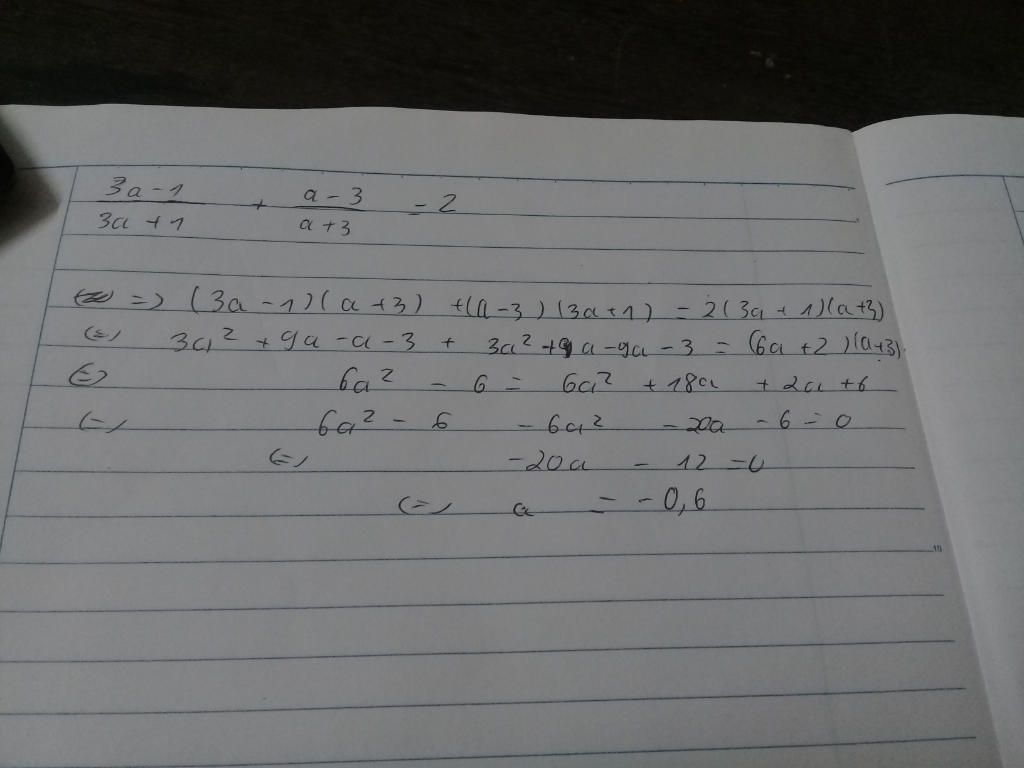 3a - 1 / 3a + 1 + a - 3 / a + 3 = 2
=> (3a - 1)(a + 3) + (a - 3)(3a + 1) = 2(3a + 1)(a + 3)
<=> 3a² + 9a - a - 3 + 3a² + a - 9a - 3 = (6a + 2)(a + 3)
<=> 6a² - 6 = 6a² + 18a + 2a + 6
<=> 6a² - 6 - 6a² - 20a - 6 = 0
<=> -20a - 12 = 0
<=> a = -0,6
10